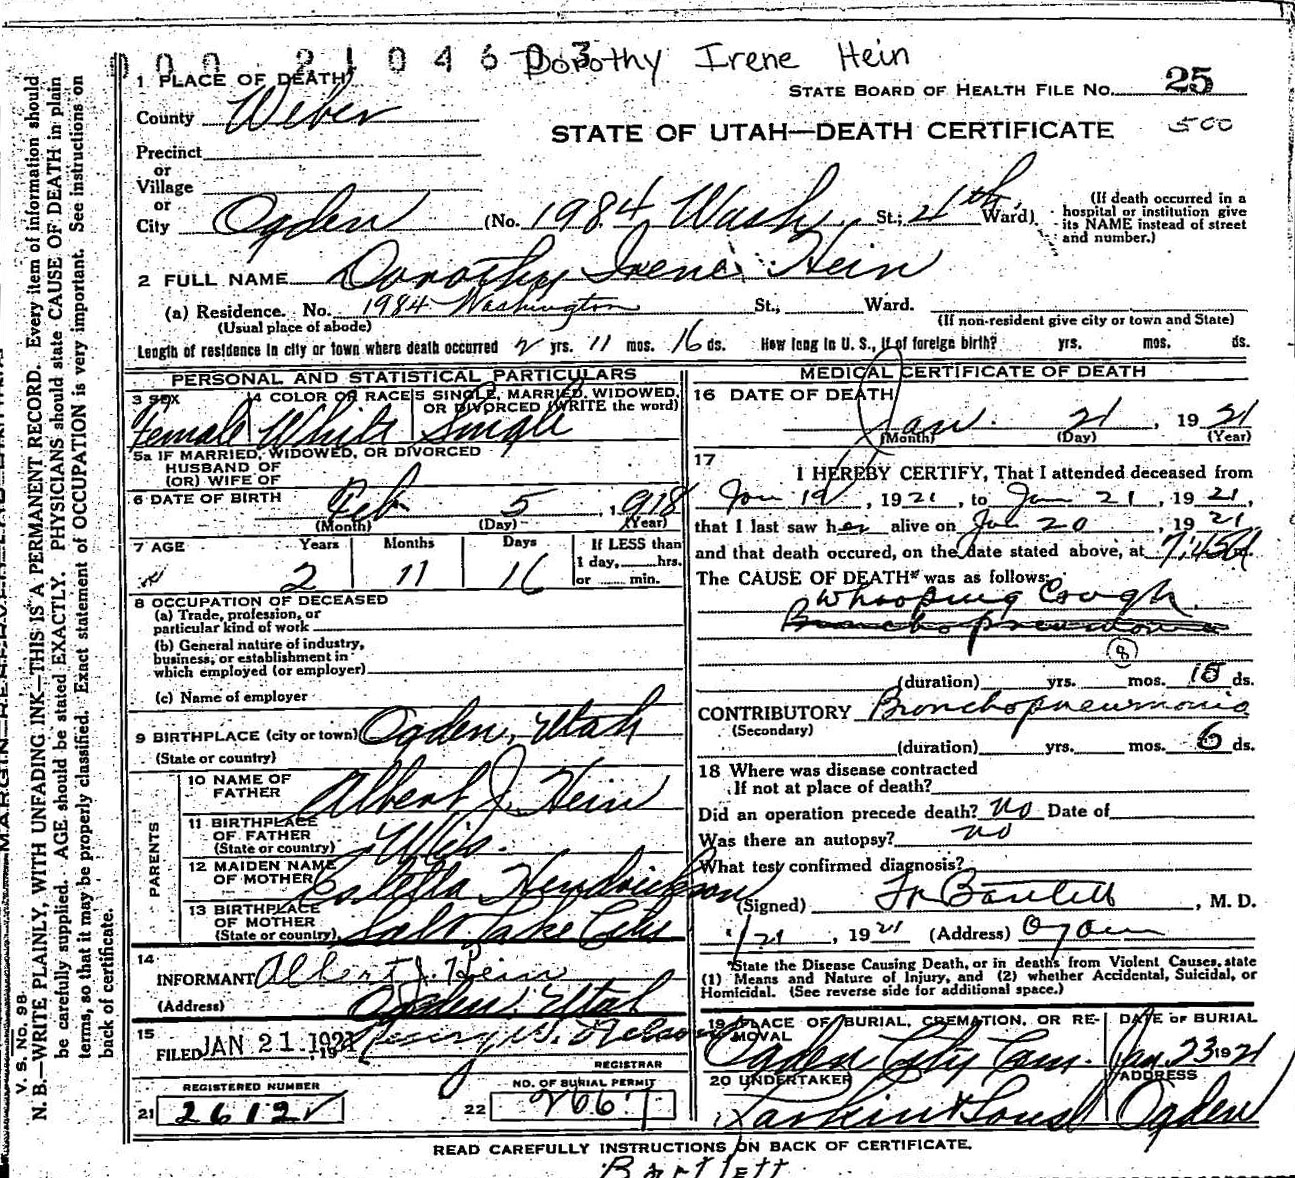 000 2104603 Dorothy Irene Hein
1 PLACE OF DEATH
STATE BOARD OF HEALTH FILE NO. 25
County Weber
STATE OF UTAH—DEATH CERTIFICATE 500
Precinct
or
Village
or
City Ogden (No. 1984 Wash. St.; 4th Ward)
(If death occurred in a hospital or institution give its NAME instead of street and number.)
2 FULL NAME Dorothy Irene Hein
(a) Residence. No. 1984 Washington St., Ward.
(Usual place of abode) (If non-resident give city or town and State)
Length of residence in city or town where death occurred 2 yrs. 11 mos. 16 ds. How long in U. S., if of foreign birth? yrs. mos. ds.
PERSONAL AND STATISTICAL PARTICULARS
3 SEX 4 COLOR OR RACE 5 SINGLE, MARRIED, WIDOWED, OR DIVORCED (WRITE the word)
Female White Single
5a IF MARRIED, WIDOWED, OR DIVORCED
HUSBAND OF
(OR) WIFE OF
6 DATE OF BIRTH Feb 5, 1918
(Month) (Day) (Year)
7 AGE Years Months Days If LESS than
1 day, hrs.
2 11 16 or min.
8 OCCUPATION OF DECEASED
(a) Trade, profession, or
particular kind of work
(b) General nature of industry,
business, or establishment in
which employed (or employer)
(c) Name of employer
9 BIRTHPLACE (city or town) Ogden, Utah
(State or country)
PARENTS
10 NAME OF FATHER Albert J. Hein
11 BIRTHPLACE OF FATHER (State or country) Wis.
12 MAIDEN NAME OF MOTHER Estella Hendrickson
13 BIRTHPLACE OF MOTHER (State or country) Salt Lake City
14
INFORMANT Albert J. Hein
(Address) Ogden, Utah
15
FILED JAN 21 1921, 19
REGISTRAR
REGISTERED NUMBER NO. OF BURIAL PERMIT
21 2612 22 2667
MEDICAL CERTIFICATE OF DEATH
16 DATE OF DEATH
Jan. 21, 1921
(Month) (Day) (Year)
17
I HEREBY CERTIFY, That I attended deceased from
Jan 19, 1921, to Jan 21, 1921,
that I last saw her alive on Jan 20, 1921
and that death occured, on the date stated above, at 7:45 a m.
The CAUSE OF DEATH* was as follows:
Whooping Cough
Bronchopneumonia
8
(duration) yrs. mos. 15 ds.
CONTRIBUTORY Bronchopneumonia
(Secondary)
(duration) yrs. mos. 6 ds.
18 Where was disease contracted
If not at place of death?
Did an operation precede death? no Date of
Was there an autopsy? no
What test confirmed diagnosis?
(Signed) Bartlett, M. D.
1/21, 1921 (Address) Ogden
*State the Disease Causing Death, or in deaths from Violent Causes, state
(1) Means and Nature of Injury, and (2) whether Accidental, Suicidal, or
Homicidal. (See reverse side for additional space.)
19 PLACE OF BURIAL, CREMATION, OR REMOVAL DATE OF BURIAL
Ogden City Cem. Jan. 23 1921
20 UNDERTAKER ADDRESS
Larkin & Sons Ogden
READ CAREFULLY INSTRUCTIONS ON BACK OF CERTIFICATE.
Bartlett
V. S. No. 98
N. B.—WRITE PLAINLY, WITH UNFADING INK—THIS IS A PERMANENT RECORD. Every item of information should
be carefully supplied. AGE should be stated EXACTLY. PHYSICIANS should state CAUSE OF DEATH in plain
terms, so that it may be properly classified. Exact statement of OCCUPATION is very important. See instructions on
back of certificate.